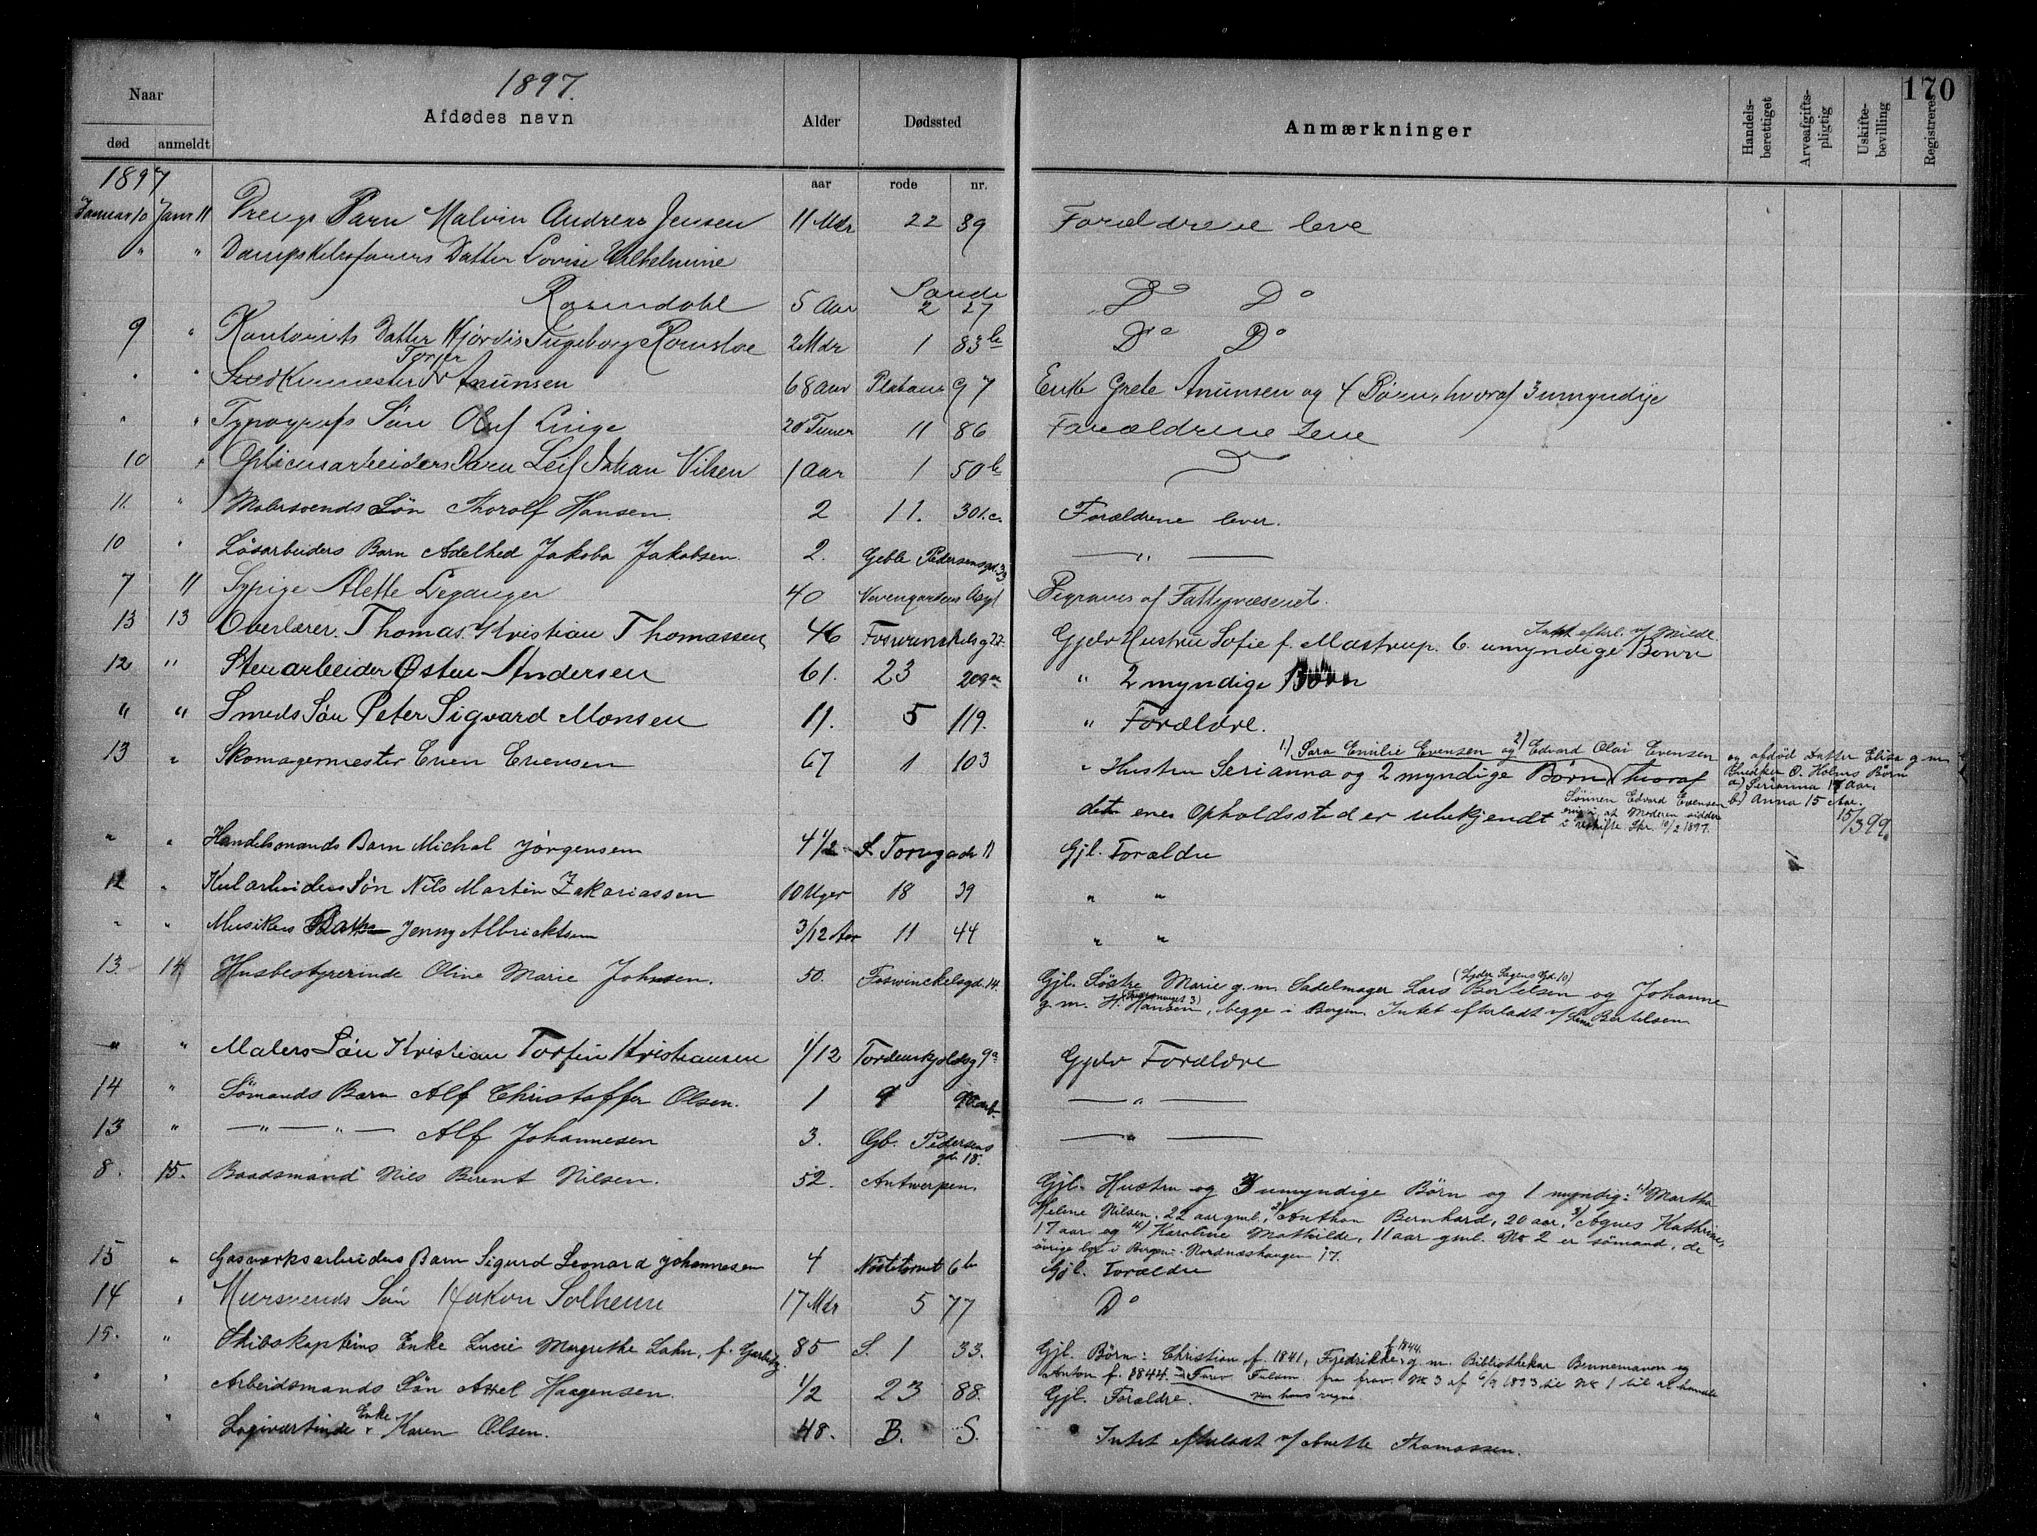 170
1897.
Naar
Afdødes navn
Alder
Dødssted
Anmærkninger
Handels-berettiget
Arveafgifts-pligtig
Uskifte-bevilling
Registreres
død anmeldt
aar rode nr.
1897
Januar 10 Janr 11 Drengs Barn Malvin Andreas Jensen 11 Mdr 22 89 Forældrene leve
" " Datter Lovise Vilhelmine
Rosendahl 5 Aar Sands 2 27 Do Do
9 " Kontorists Datter Hjördis Ingeborg 2 Mdr 1 83b Do Do
" " Snedkermester Torjer Anunsen 68 Aar 7 Enke Grete Anunsen og 4 Børn, hvoraf 3 umyndige
" " Typografs Søn Oluf Linge 20 Timer 11 86 Forældrene leve
10 " Barn Leif Johan Nilsen 1 Aar 1 50b
11. " Malersvends Søn Thorolf Hansen. 2 11. 301.c. Forældrene lever.
10 " Løsarbeiders Barn Adelhed Jakoba Jakobsen. 2. Geble Pedersensgd. 33 — " —
7 11 Sypige Alette Leganger 40 Begraves af Fattigvæsenet.
13 13 Overlærer. Thomas Kristian Thomassen 46 Foswinkelsg 22. Gjelv Hustru Sofie f. Mastrup. 6 umyndige Børn Intet efterl. v/ Milde.
12 " Stenarbeider Østen Andersen 61. 23 209a " 2 myndige Børn
" " Smeds Søn Peter Sigvard Monsen 11. 5 119. " Forældre.
13 " Skomagermester Even Evensen 67 1 103 " Hustru Serianna og 2 myndige Børn 1) Sara Emilie Evensen og 2) Edvard Olai Evensen hvoraf
og afdød Datter Elisa g.m. O. Holms Børn
a) Serianna 17 Aar.
b) Anna 15 Aar.
den enes Opholdssted er ubekjendt Sønnen Edvard Evensen enig i, at Moderen sidder i uskifte. Skr. 10/2 1897. 15/3 99
" " Handelsmands Barn Michal Jørgensen 4 1/2 S. Torvgade 11 Gjl. Forældre
12 " Kularbeiders Søn Nils Martin Zakariassen 10 Uger 18 39 " "
" " Musikers Jenny Albricktsen 3/12 Aar 11 44 " "
13. 14 Husbestyrerinde Oline Marie Johnsen. 50. Foswinckelsgd. 14. Gjl. Søstre Marie g.m. Sadelmager Lars Bertelsen (Lyder Sagens Gd. 10) og Johanne
g.m. H. Hansen, begge i Bergen. Intet efterladt v/ Bertelsen
" " Malers Søn Kristian Torfin Kristiansen 1/12 Tordenskjoldsg 9a Gjelv Forældre
14 " Sømands Barn Alf Christoffer Olsen. 1 9 — " —
13 " — " — " — Alf Johannesen 3. Gb. Pedersens gd. 18. — " —
8. 15. Baadsmand Nils Berent Nilsen. 52. Antwerpen. Gjl. Hustru og 3 umyndige Børn og 1 myndig: 1) Martha
Helene Nilsen, 22 aar gml., 2) Anthon Bernhard, 20 aar, 3) Agnes Kathrine,
17 aar og 4) Karoline Mathilde, 11 aar gml. No 2 er sømand, de
øvrige bor i Bergen. Nordnæshaugen 17.
15 " Gasværksarbeiders Barn Sigurd Leonard Johannesen 4 Nøstetorvet 6b Gjl. Forældre
14 " Mursvends Søn Hakon Solheim 17 Mdr 5 77 Do
15. " Skibskapteins Enke Lucie Margrethe Lahn, f. 85 S. 1 33. Gjl. Børn: Christian f. 1841, Fredrikke f. 1844. g.m. Bibliothekar Bennemann og
Anton f. 1844. Fuldm. fra frav. No 3 af 6/9 1893 til No 1 til at handle
paa hans vegne
" " Arbeidsmands Søn Axel Haagensen. 1/2 23 88. Gjl. Forældre.
" " Logiværtinde Enke Karen Olsen. 48. B. S. Intet efterladt v/ Anette Thomassen.